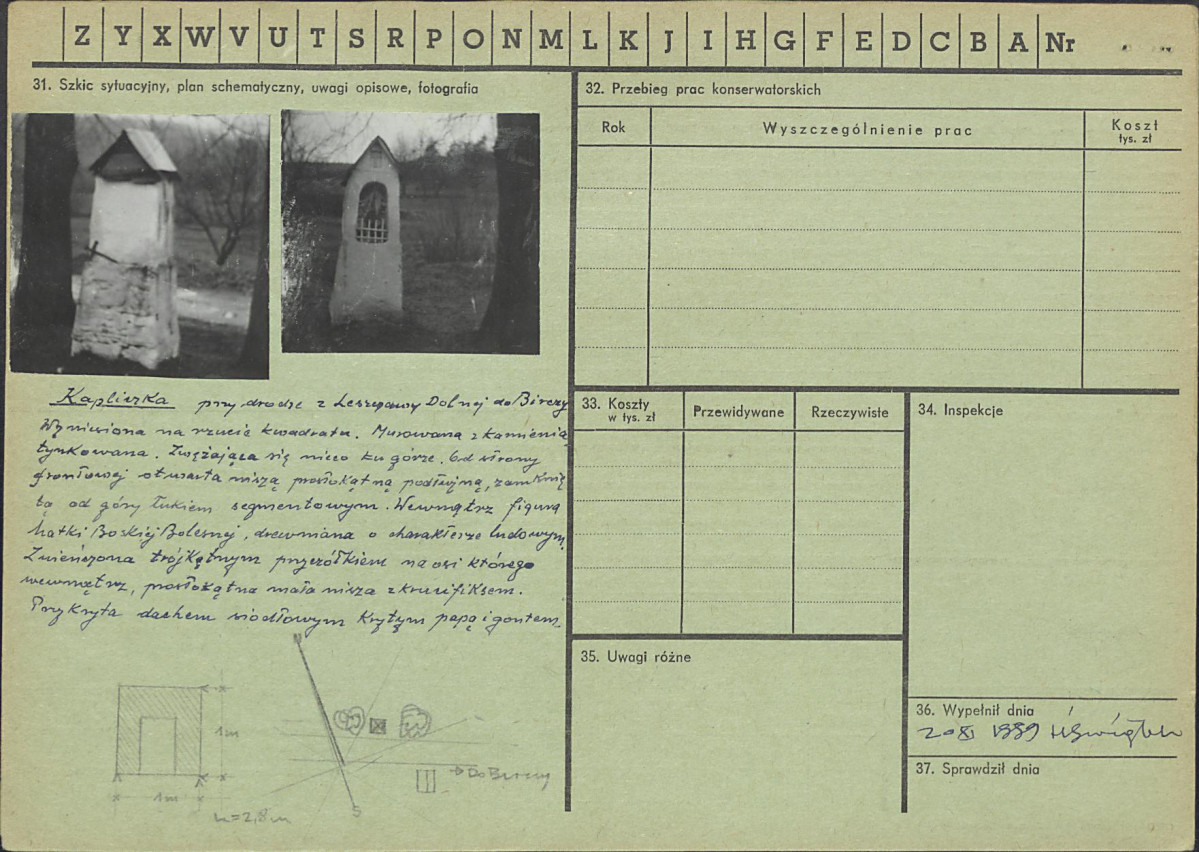 Z Y X W V U T S R P O N M L K J I H G F E D C B A Nr
31. Szkic sytuacyjny, plan schematyczny, uwagi opisowe, fotografia
Kapliczka przy drodze z Leszczawy Dolnej do Birczy
Wzniesiona na rzucie kwadratu. Murowana z kamienia,
tynkowana. Zwężająca się nieco ku górze. Od strony
frontowej otwarta niszą prostokątną podwójną, zamknię
tą od góry łukiem segmentowym. Wewnątrz figura
Matki Boskiej Bolesnej, drewniana o charakterze ludowym.
Zwieńczona trójkątnym przyczółkiem na osi którego
wewnątrz, prostokątna mała nisza z krucifiksem.
Przykryta dachem siodłowym krytym papą i gontem
N
1m
1m
h=2,8m
S
Do Birczy
32. Przebieg prac konserwatorskich
Rok Wyszczególnienie prac Koszt
tys. zł
33. Koszty
w tys. zł
Przewidywane Rzeczywiste
34. Inspekcje
35. Uwagi różne
36. Wypełnił dnia
20 XI 1989
37. Sprawdził dnia